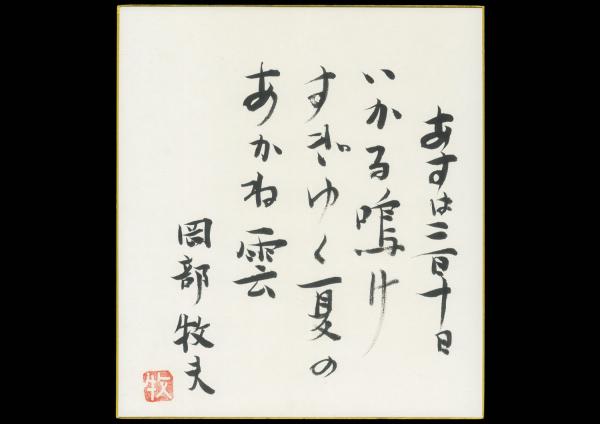 あすは二百十日
いかる鳴け
すぎゆく夏の
あかね雲
岡部牧夫
牧